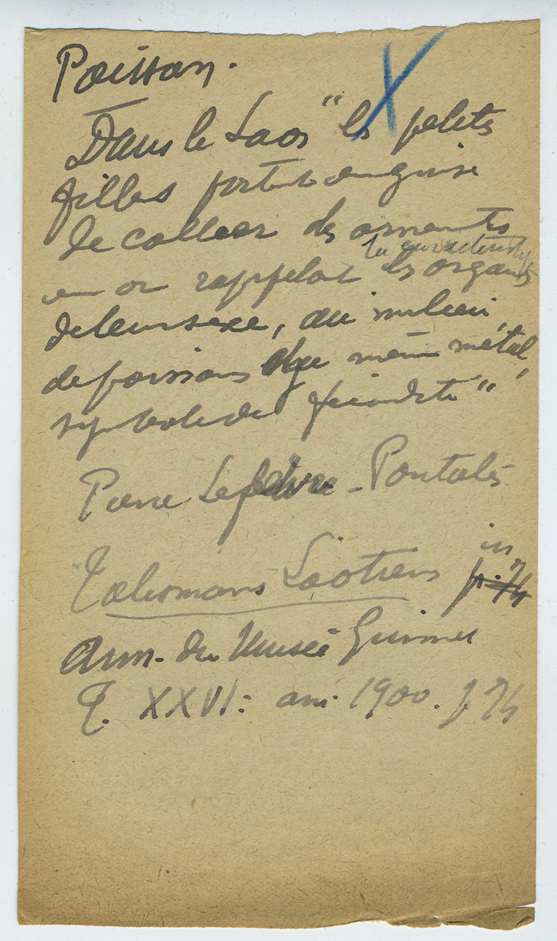 Poisson.
Dans le Laos "les petites
filles portent en guise
de collier des ornements
en or rappelant les organes
de leur sexe, au milieu
de poissons du même métal,
symbole de fécondité"
Pierre Lefèvre-Pontalis
Talismans Laotiens in
Ann. du Musée Guimet
T. XXVI: ann. 1900. p.